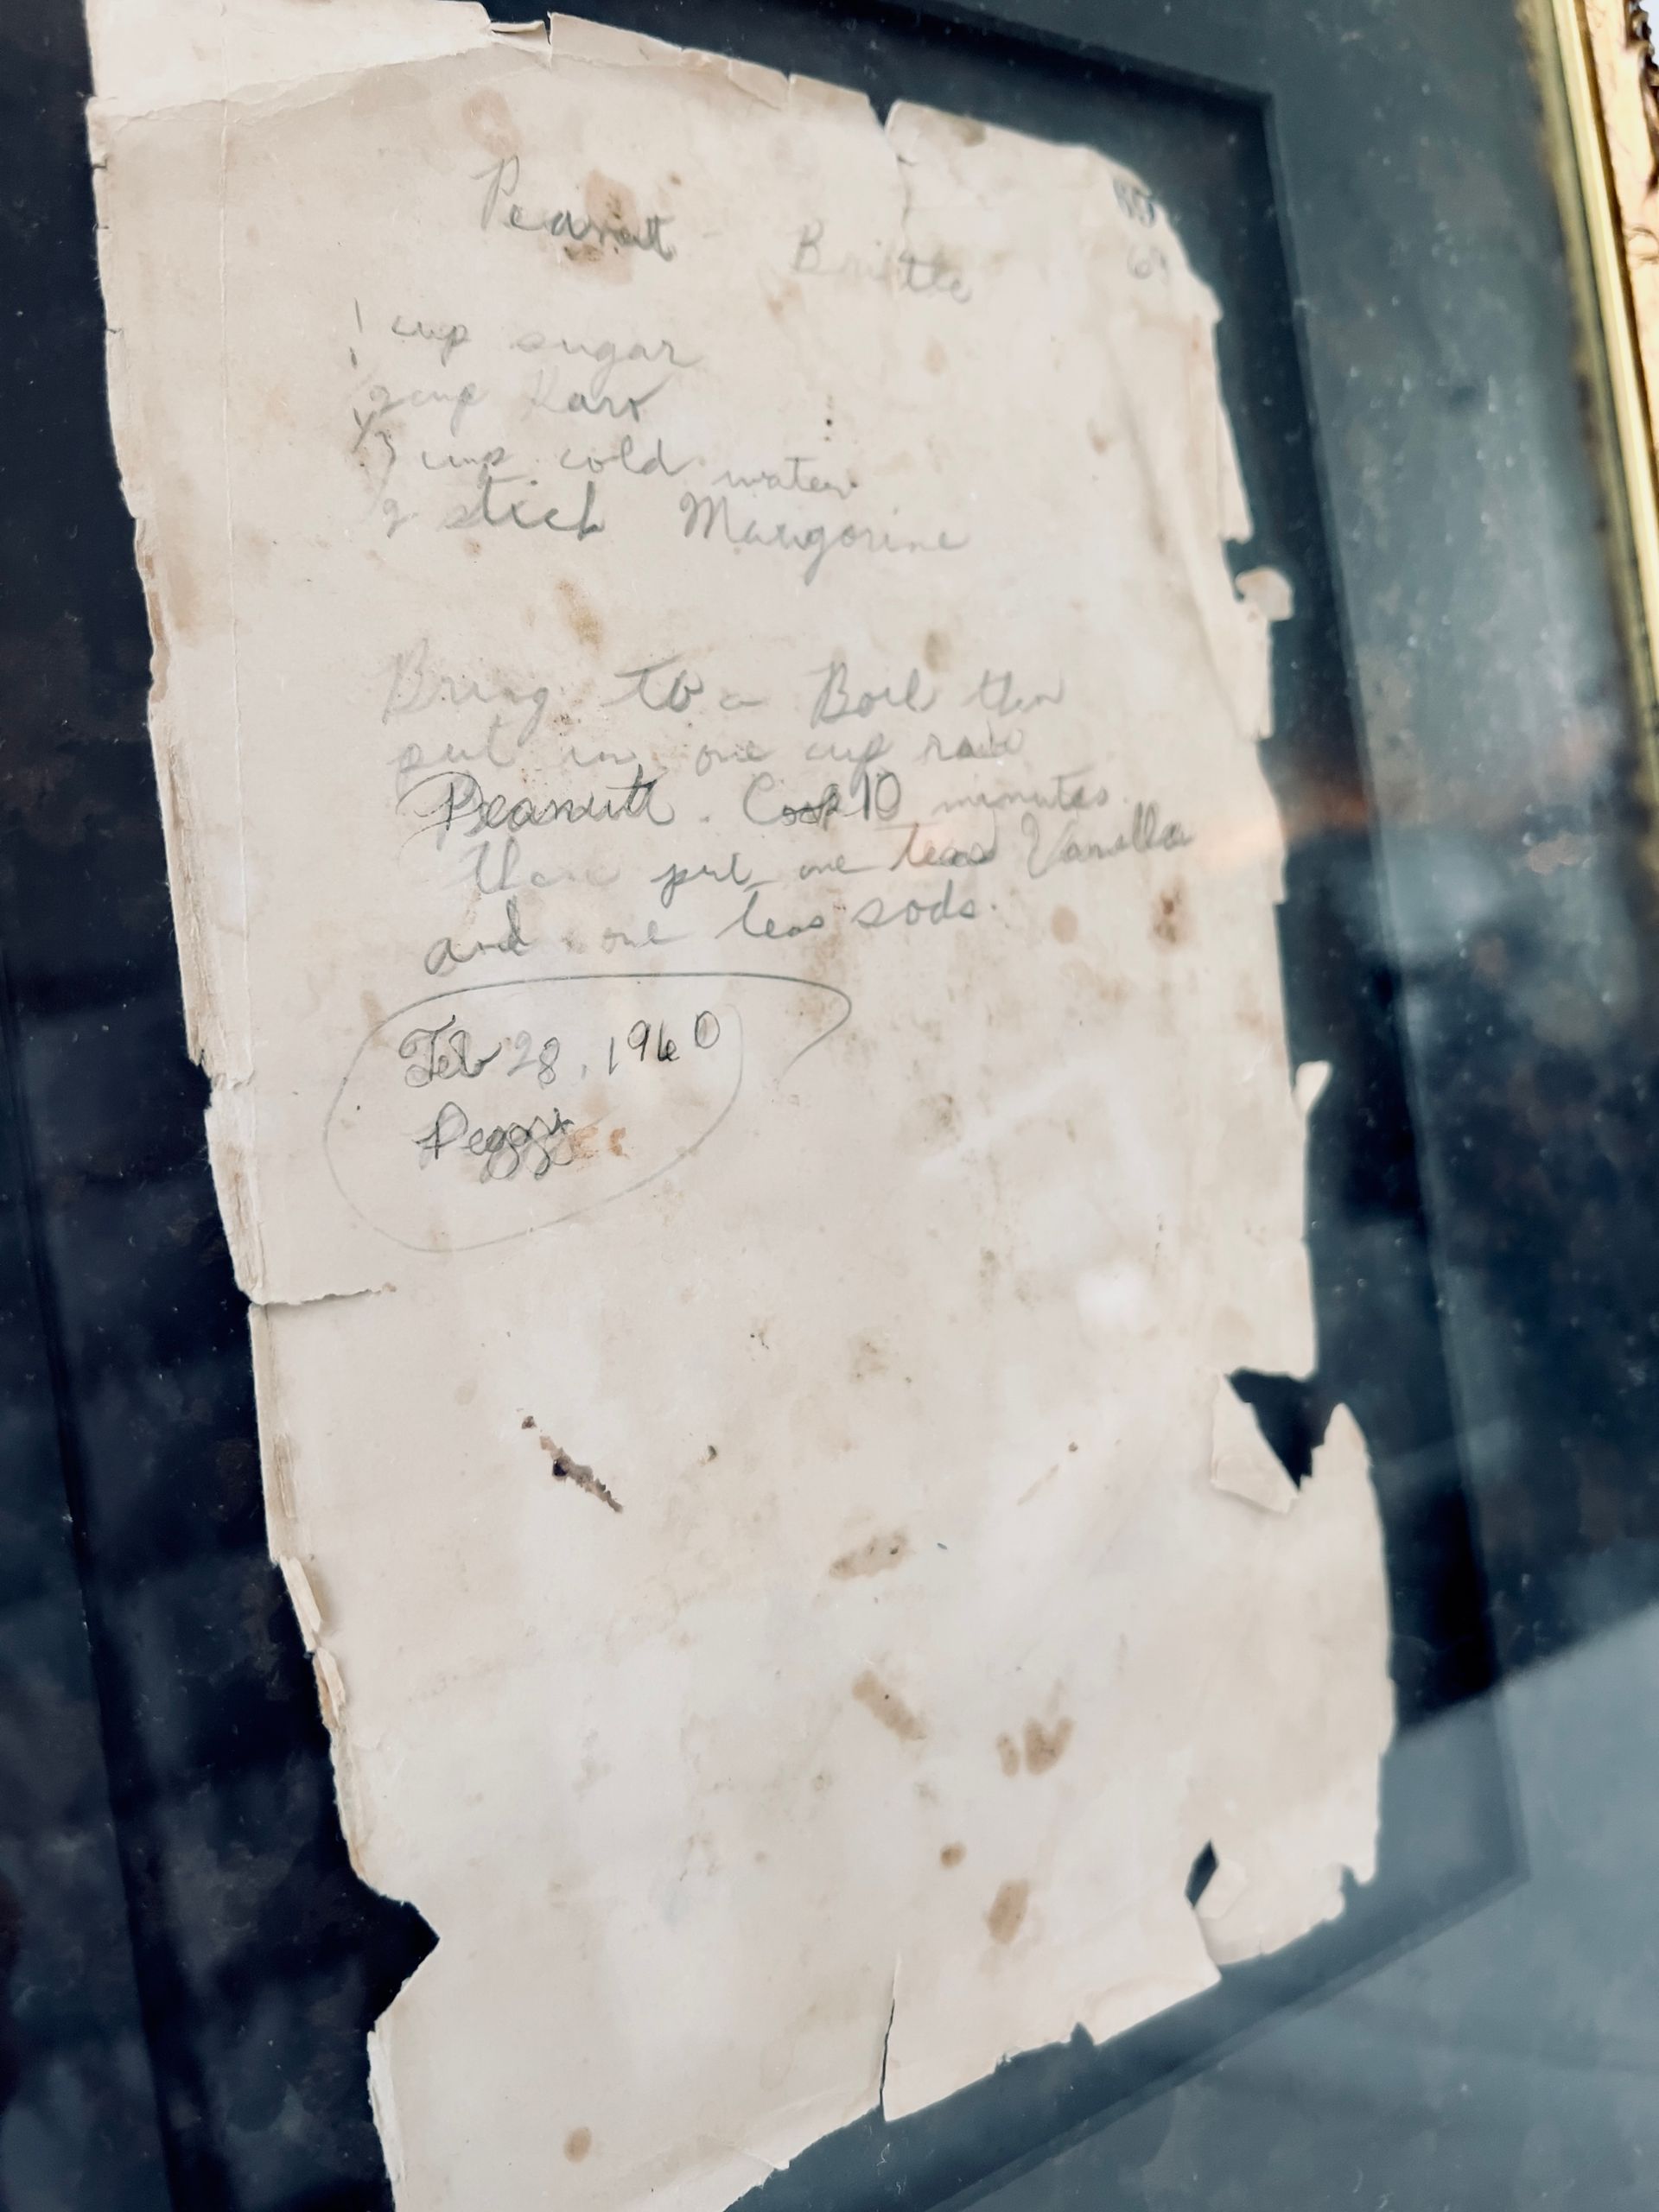 Peanutt Brittle
1 cup sugar
1/2 cup Karo
1/3 cup cold water
2 stick Margorine
Bring to a Boil then
put in one cup raw
Peanutt. Cook 10 minutes.
then put one teas Vanilla
and one teas soda.
Feb 28, 1960
Peggy